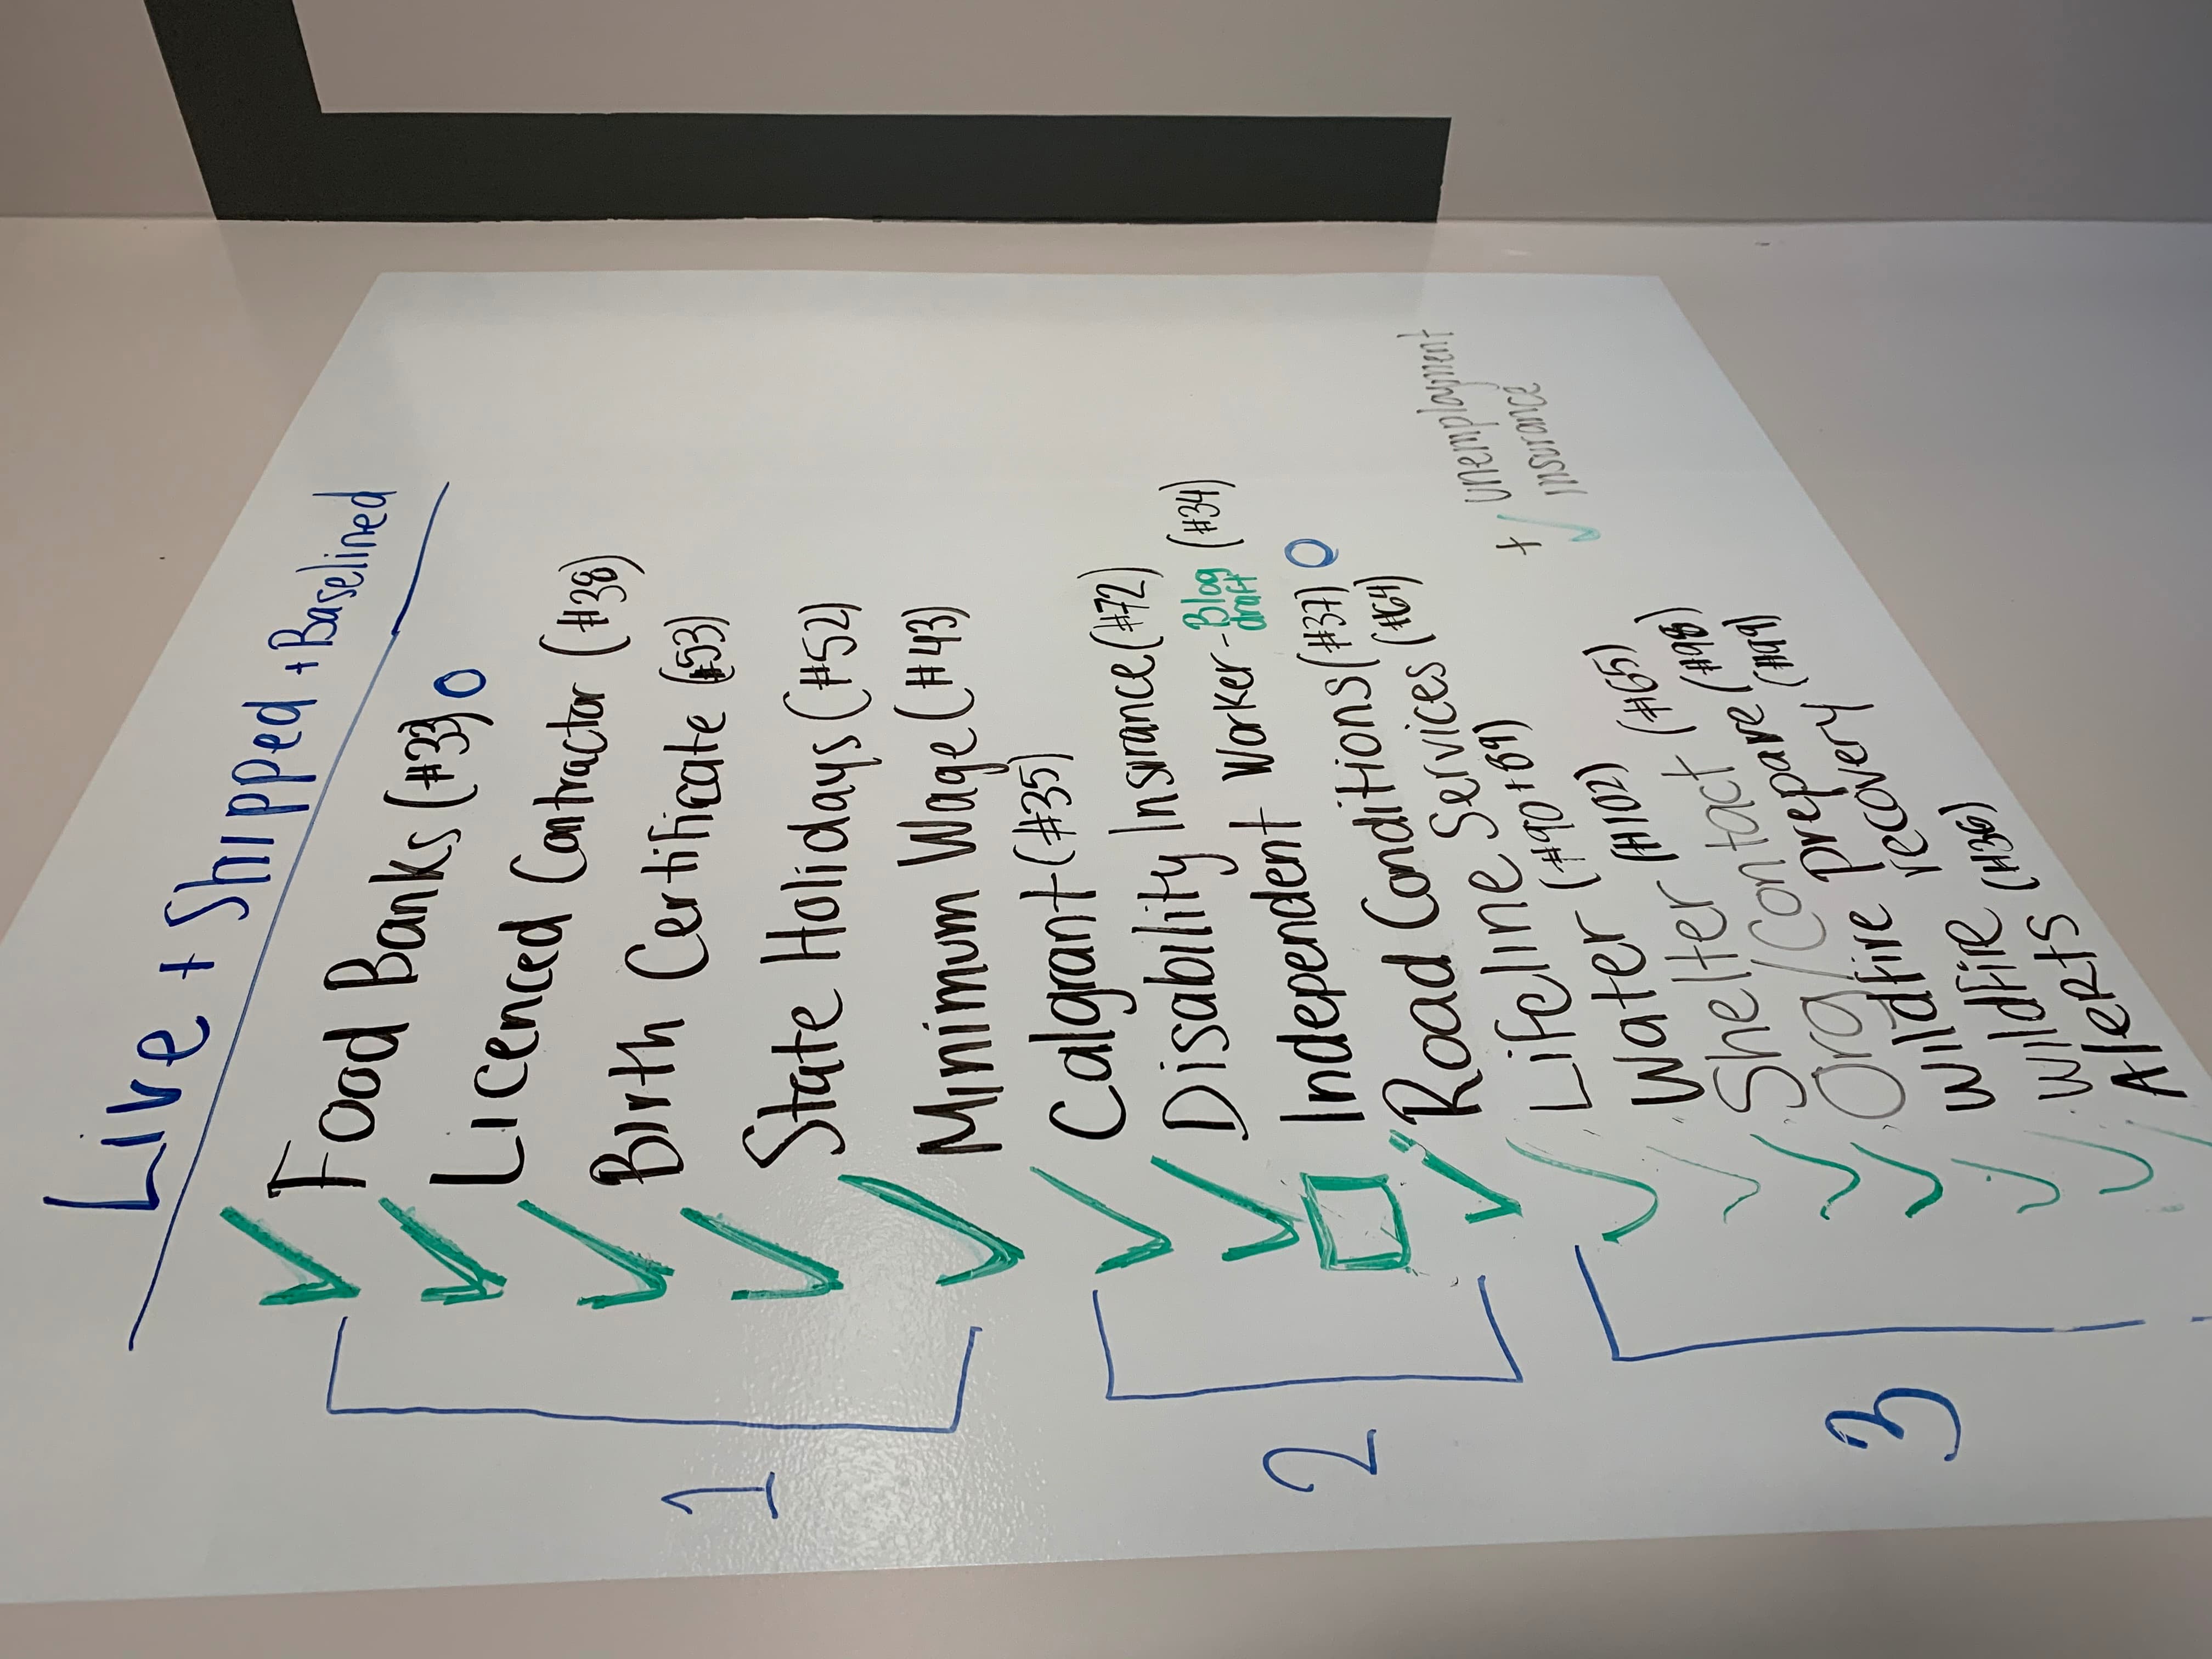 Live + Shipped + Baselined
1
✓ Food Banks (#33) O
✓ Licenced Contractor (#38)
✓ Birth Certificate (#53)
✓ State Holidays (#52)
✓ Minimum Wage (#43)
2
✓ Calgrant (#35)
✓ Disability Insurance (#72)
☐ Independent Worker - Blog draft (#34)
✓ Road Conditions (#37) O
3
✓ Lifeline Services (#64)
✓ Water (#90 + 69)
✓ Shelter (#102)
✓ Org/Contact (#65)
✓ Wildfire prepare (#98)
✓ Wildfire recovery (#99)
Alerts (#36)
+ unemployment
✓ insurance